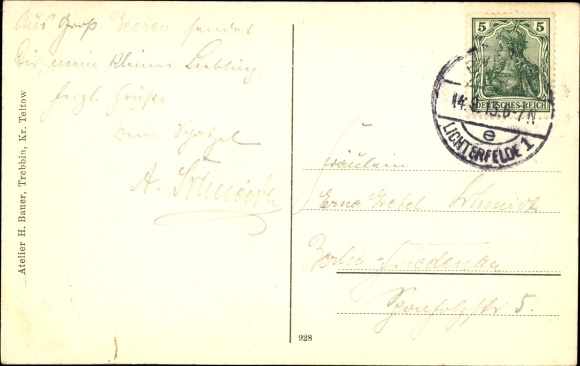 Aus Groß Beeren sendet
Dir, mein kleiner Liebling,
herzl. Grüße
Dein Schatzel
A. Schneider
Atelier H. Bauer, Trebbin, Kr. Teltow
928
5 5
DEUTSCHES REICH
14. 13. 6-7 N
LICHTERFELDE 1
e
Fräulein
Erna Schmidt
Berlin-Friedenau
5.